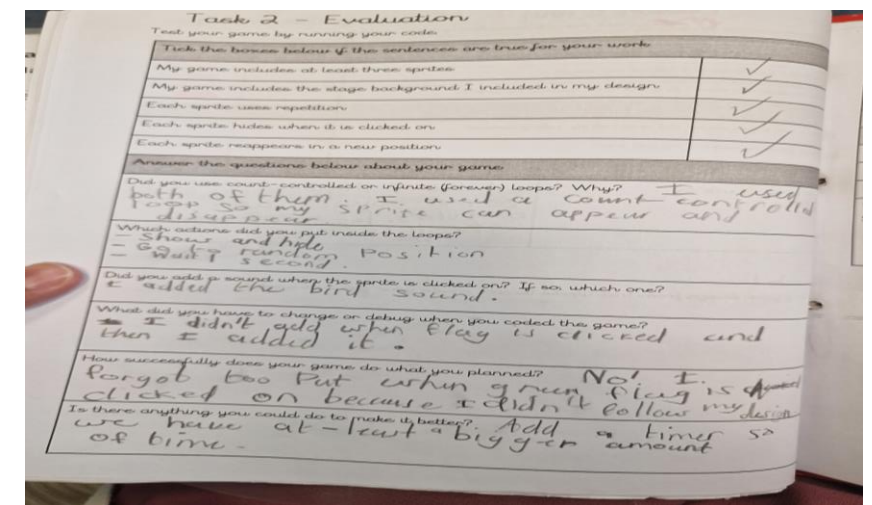 Task 2 - Evaluation
Test your game by running your code.
Tick the boxes below if the sentences are true for your work
My game includes at least three sprites
My game includes the stage background I included in my design
Each sprite uses repetition
Each sprite hides when it is clicked on
Each sprite reappears in a new position
Answer the questions below about your game
Did you use count-controlled or infinite (forever) loops? Why? I used
both of them. I used a count controlld
loop so my sprite can appear and
disappear
Which actions did you put inside the loops?
- Show and hide
- Go to random Position
- wait 1 second.
Did you add a sound when the sprite is clicked on? If so, which one?
I added the bird sound.
What did you have to change or debug when you coded the game?
- I didn't add when flag is clicked and
then I added it.
How successfully does your game do what you planned? No! I
forgot too Put when green flag is
clicked on because I didn't follow my design
Is there anything you could do to make it better? Add a timer so
we have at-least a bigger amount
of time.